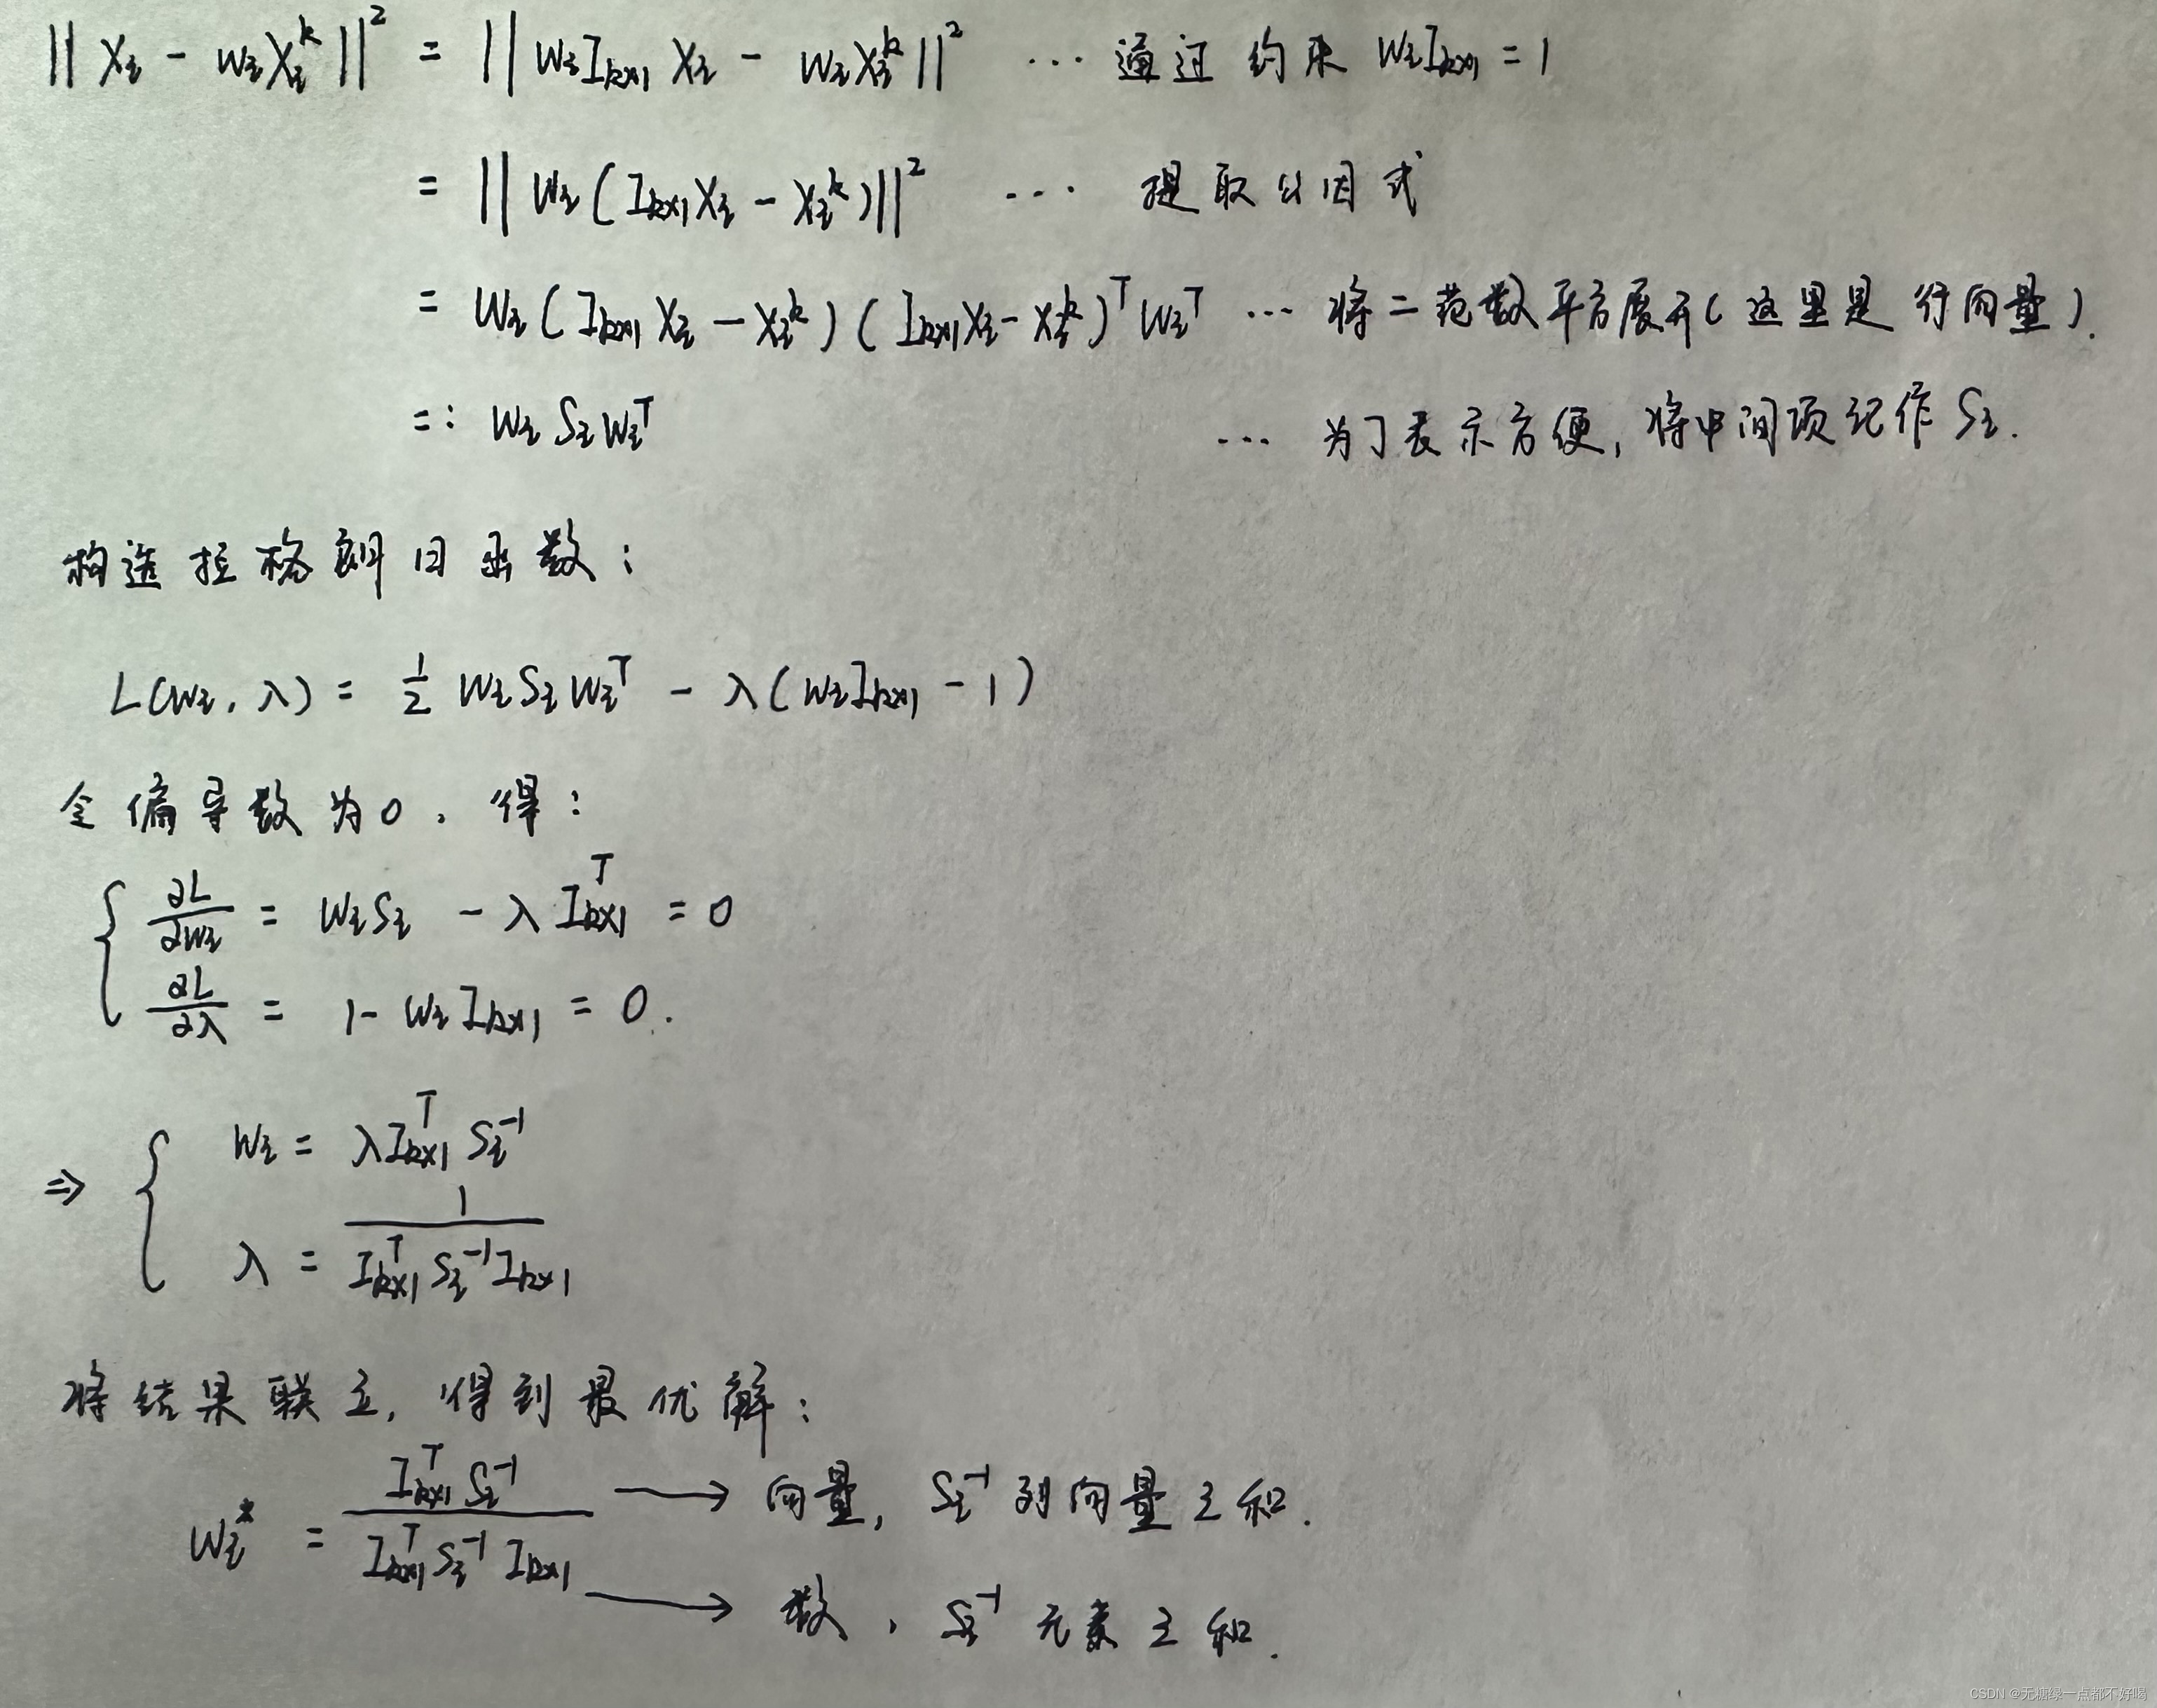 ‖Xᵢ - WᵢXᵢᵏ‖² = ‖WᵢIₖₓ₁Xᵢ - WᵢXᵢᵏ‖² ... 通过约束 WᵢIₖₓ₁ = 1
= ‖Wᵢ(Iₖₓ₁Xᵢ - Xᵢᵏ)‖² ... 提取公因式
= Wᵢ(Iₖₓ₁Xᵢ - Xᵢᵏ)(Iₖₓ₁Xᵢ - Xᵢᵏ)ᵀWᵢᵀ ... 将二范数平方展开(这里是行向量).
=: WᵢSᵢWᵢᵀ ... 为了表示方便, 将中间项记作 Sᵢ.
构造拉格朗日函数:
L(Wᵢ, λ) = 1/2 WᵢSᵢWᵢᵀ - λ(WᵢIₖₓ₁ - 1)
令偏导数为0, 得:
{ ∂L/∂Wᵢ = WᵢSᵢ - λIₖₓ₁ᵀ = 0
∂L/∂λ = 1 - WᵢIₖₓ₁ = 0.
⇒ { Wᵢ = λIₖₓ₁ᵀSᵢ⁻¹
λ = 1/(Iₖₓ₁ᵀSᵢ⁻¹Iₖₓ₁)
将结果联立, 得到最优解:
Wᵢ* = Iₖₓ₁ᵀSᵢ⁻¹ / (Iₖₓ₁ᵀSᵢ⁻¹Iₖₓ₁)
→ 向量, Sᵢ⁻¹ 列向量之和.
→ 数, Sᵢ⁻¹ 元素之和.
CSDN @无糖绿一点都不好喝